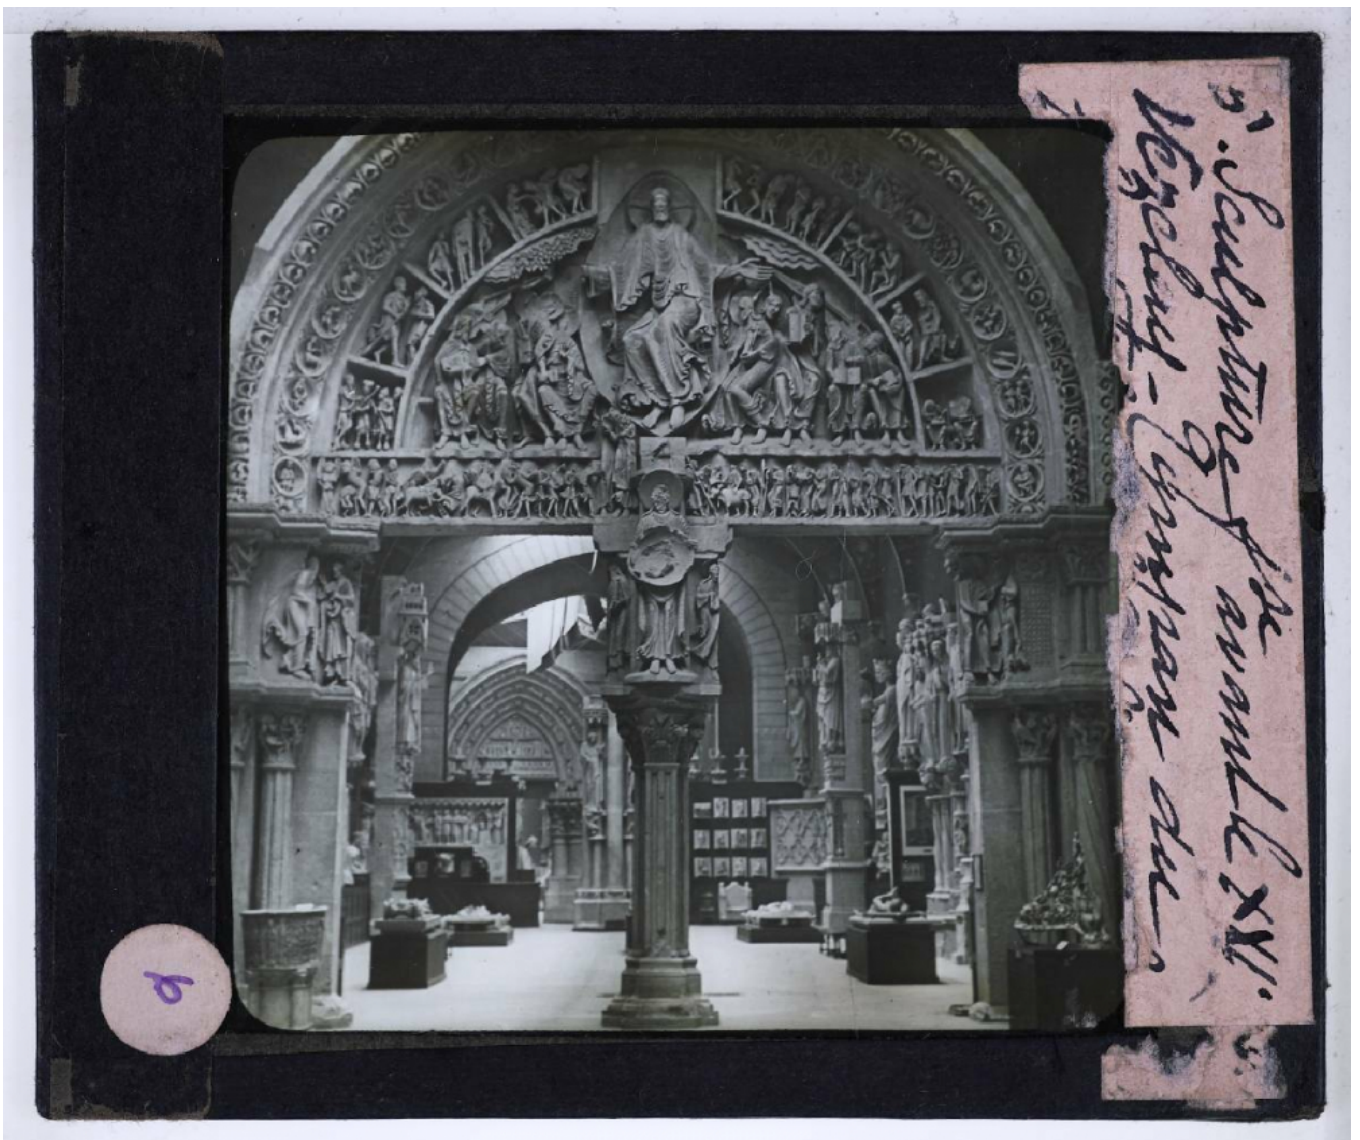 5. Sculpture fse avant le XVe
Vézelay - Tympan du
6